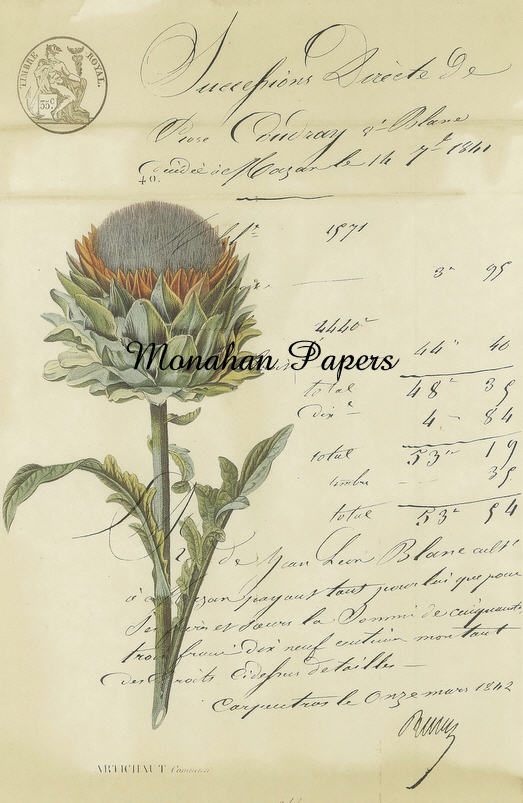 TIMBRE ROYAL
35 C.
Successions Directe De
Rose Coudray Vᵉ Blanc
Décédée à Mazan le 14 7ᵇ 1841
40.
1571
3" 95
4440"
44" 40
total 48" 35
dixᵉ 4 - 84
total 53" 19
timbre 35
total 53" 54
Monahan Papers
de Jean Léon Blanc cultᵉ
à Mazan payant tant pour lui que pour
et sœurs la Somme de cinquante
trois francs dix neuf centimes montant
des Droits cidessus detaillés —
Carpentras le Onze mars 1842
ARTICHAUT Commun